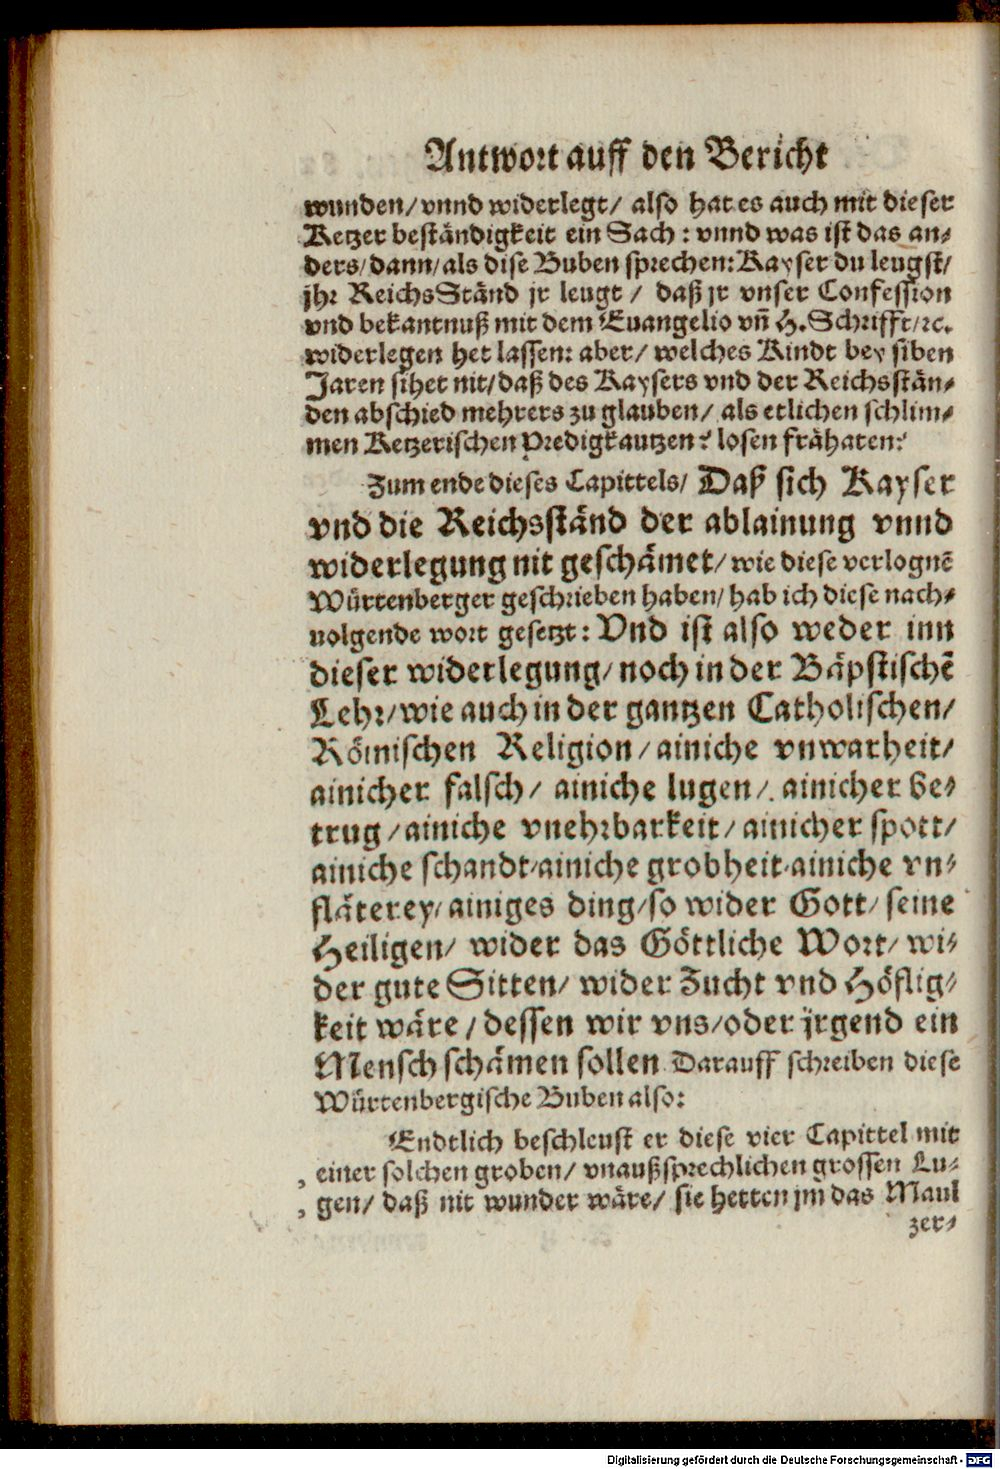 Antwort auff den Bericht
wunden/ vnnd widerlegt/ also hat es auch mit dieser
Ketzer beständigkeit ein Sach: vnnd was ist das an-
ders/ dann/ als dise Buben sprechen: Kayser du leugst/
jhr ReichsStänd jr leugt/ daß jr vnser Confession
vnd bekantnuß mit dem Euangelio vn̄ H. Schrifft/ ꝛc.
widerlegen het lassen: aber/ welches Kindt bey siben
Jaren sihet nit/ daß des Kaysers vnd der Reichsstän-
den abschied mehrers zu glauben/ als etlichen schlim-
men Ketzerischen Predigkautzen? losen frähaten?
Zum ende dieses Capittels/ Daß sich Kayser
vnd die Reichsständ der ablainung vnnd
widerlegung nit geschämet/ wie diese verlognē
Würtenberger geschrieben haben/ hab ich diese nach-
uolgende wort gesetzt: Vnd ist also weder inn
dieser widerlegung/ noch in der Bäpstischē
Lehr/ wie auch in der gantzen Catholischen/
Römischen Religion/ ainiche vnwarheit/
ainicher falsch/ ainiche lugen/ ainicher be-
trug/ ainiche vnehrbarkeit/ ainicher spott/
ainiche schandt/ ainiche grobheit/ ainiche vn-
fläterey/ ainiges ding/ so wider Gott/ seine
Heiligen/ wider das Göttliche Wort/ wi-
der gute Sitten/ wider Zucht vnd Höflig-
keit wäre/ dessen wir vns/ oder jrgend ein
Mensch schämen sollen Darauff schreiben diese
Würtenbergische Buben also:
Endtlich beschleust er diese vier Capittel mit
, einer solchen groben/ vnaußsprechlichen grossen Lu-
, gen/ daß nit wunder wäre/ sie hetten jm das Maul
zer-
Digitalisierung gefördert durch die Deutsche Forschungsgemeinschaft - DFG